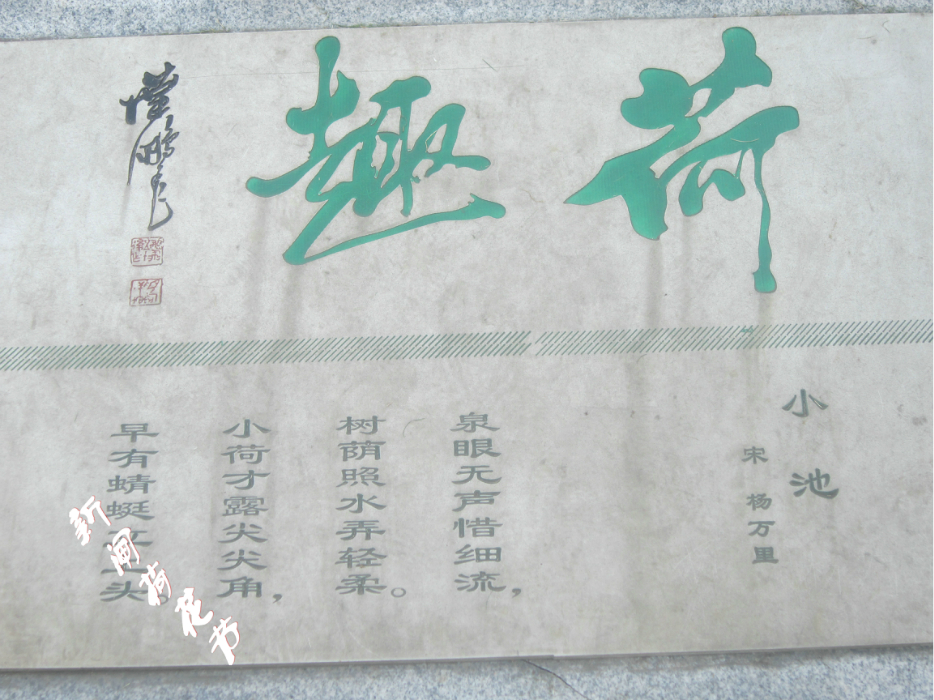 荷趣
小池
宋 杨万里
泉眼无声惜细流，
树荫照水弄轻柔。
小荷才露尖尖角，
早有蜻蜓立上头。
新闸荷花节